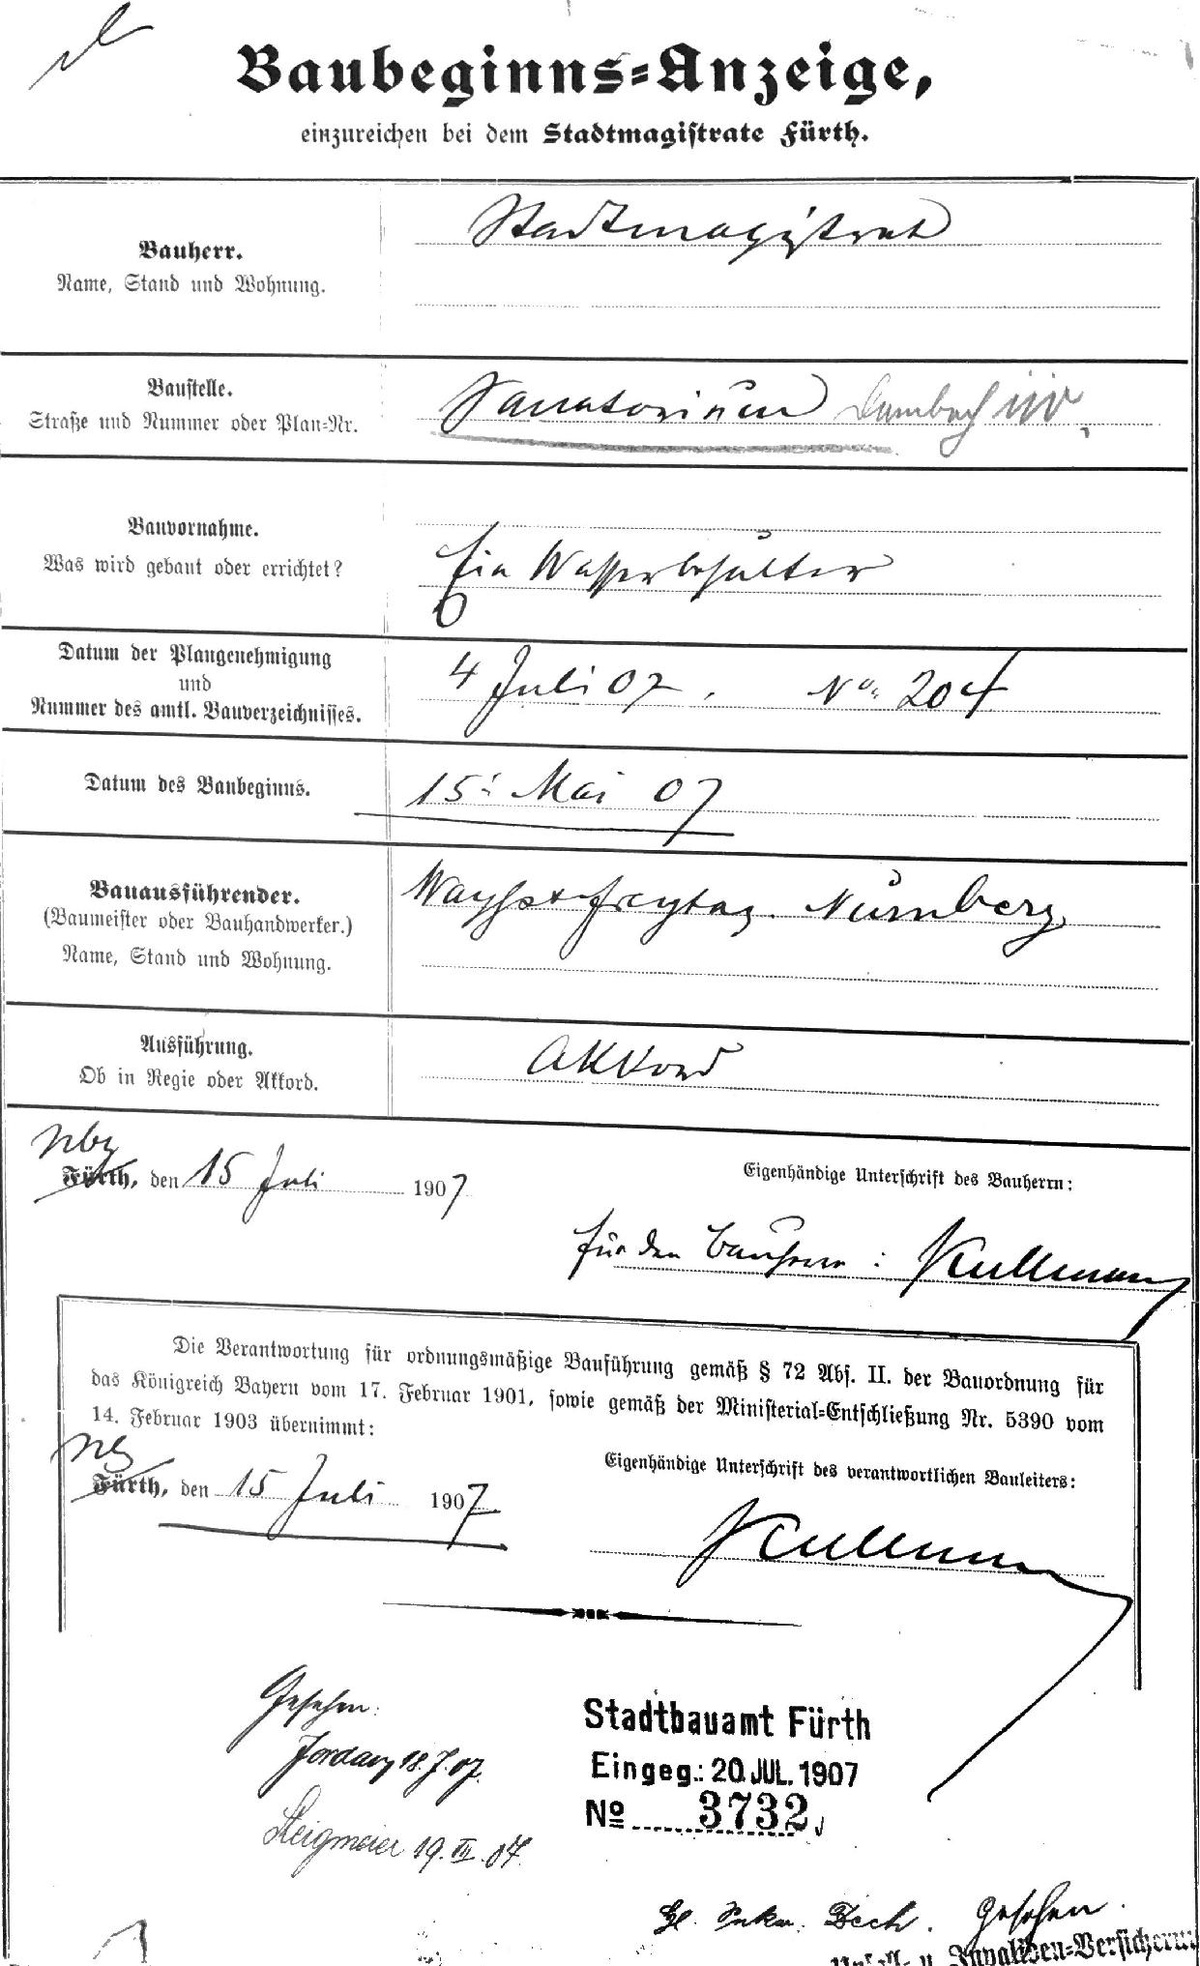 Baubeginns-Anzeige,
einzureichen bei dem Stadtmagistrate Fürth.
Bauherr.
Name, Stand und Wohnung.
Stadtmagistrat
Baustelle.
Straße und Nummer oder Plan-Nr.
Sanatorium Dambach
Bauvornahme.
Was wird gebaut oder errichtet?
Ein Wasserbehälter
Datum der Plangenehmigung
und
Nummer des amtl. Bauverzeichnisses.
4 Juli 07. No. 204
Datum des Baubeginns.
15. Mai 07
Bauausführender.
(Baumeister oder Bauhandwerker.)
Name, Stand und Wohnung.
Wayss + Freytag. Nürnberg
Ausführung.
Ob in Regie oder Akkord.
Akkord
Nbg
Fürth, den 15 Juli 1907
Eigenhändige Unterschrift des Bauherrn:
für den Bauherrn: Kullmann
Die Verantwortung für ordnungsmäßige Bauführung gemäß § 72 Abs. II. der Bauordnung für
das Königreich Bayern vom 17. Februar 1901, sowie gemäß der Ministerial-Entschließung Nr. 5390 vom
14. Februar 1903 übernimmt:
Nbg
Fürth, den 15 Juli 1907
Eigenhändige Unterschrift des verantwortlichen Bauleiters:
Kullmann
Gesehen:
Jordan 18.7.07.
Steigmeier 19. VII. 07.
Stadtbauamt Fürth
Eingeg.: 20. JUL. 1907
No 3732
Gesehen.
Unfall- u. Invaliden-Versicherun